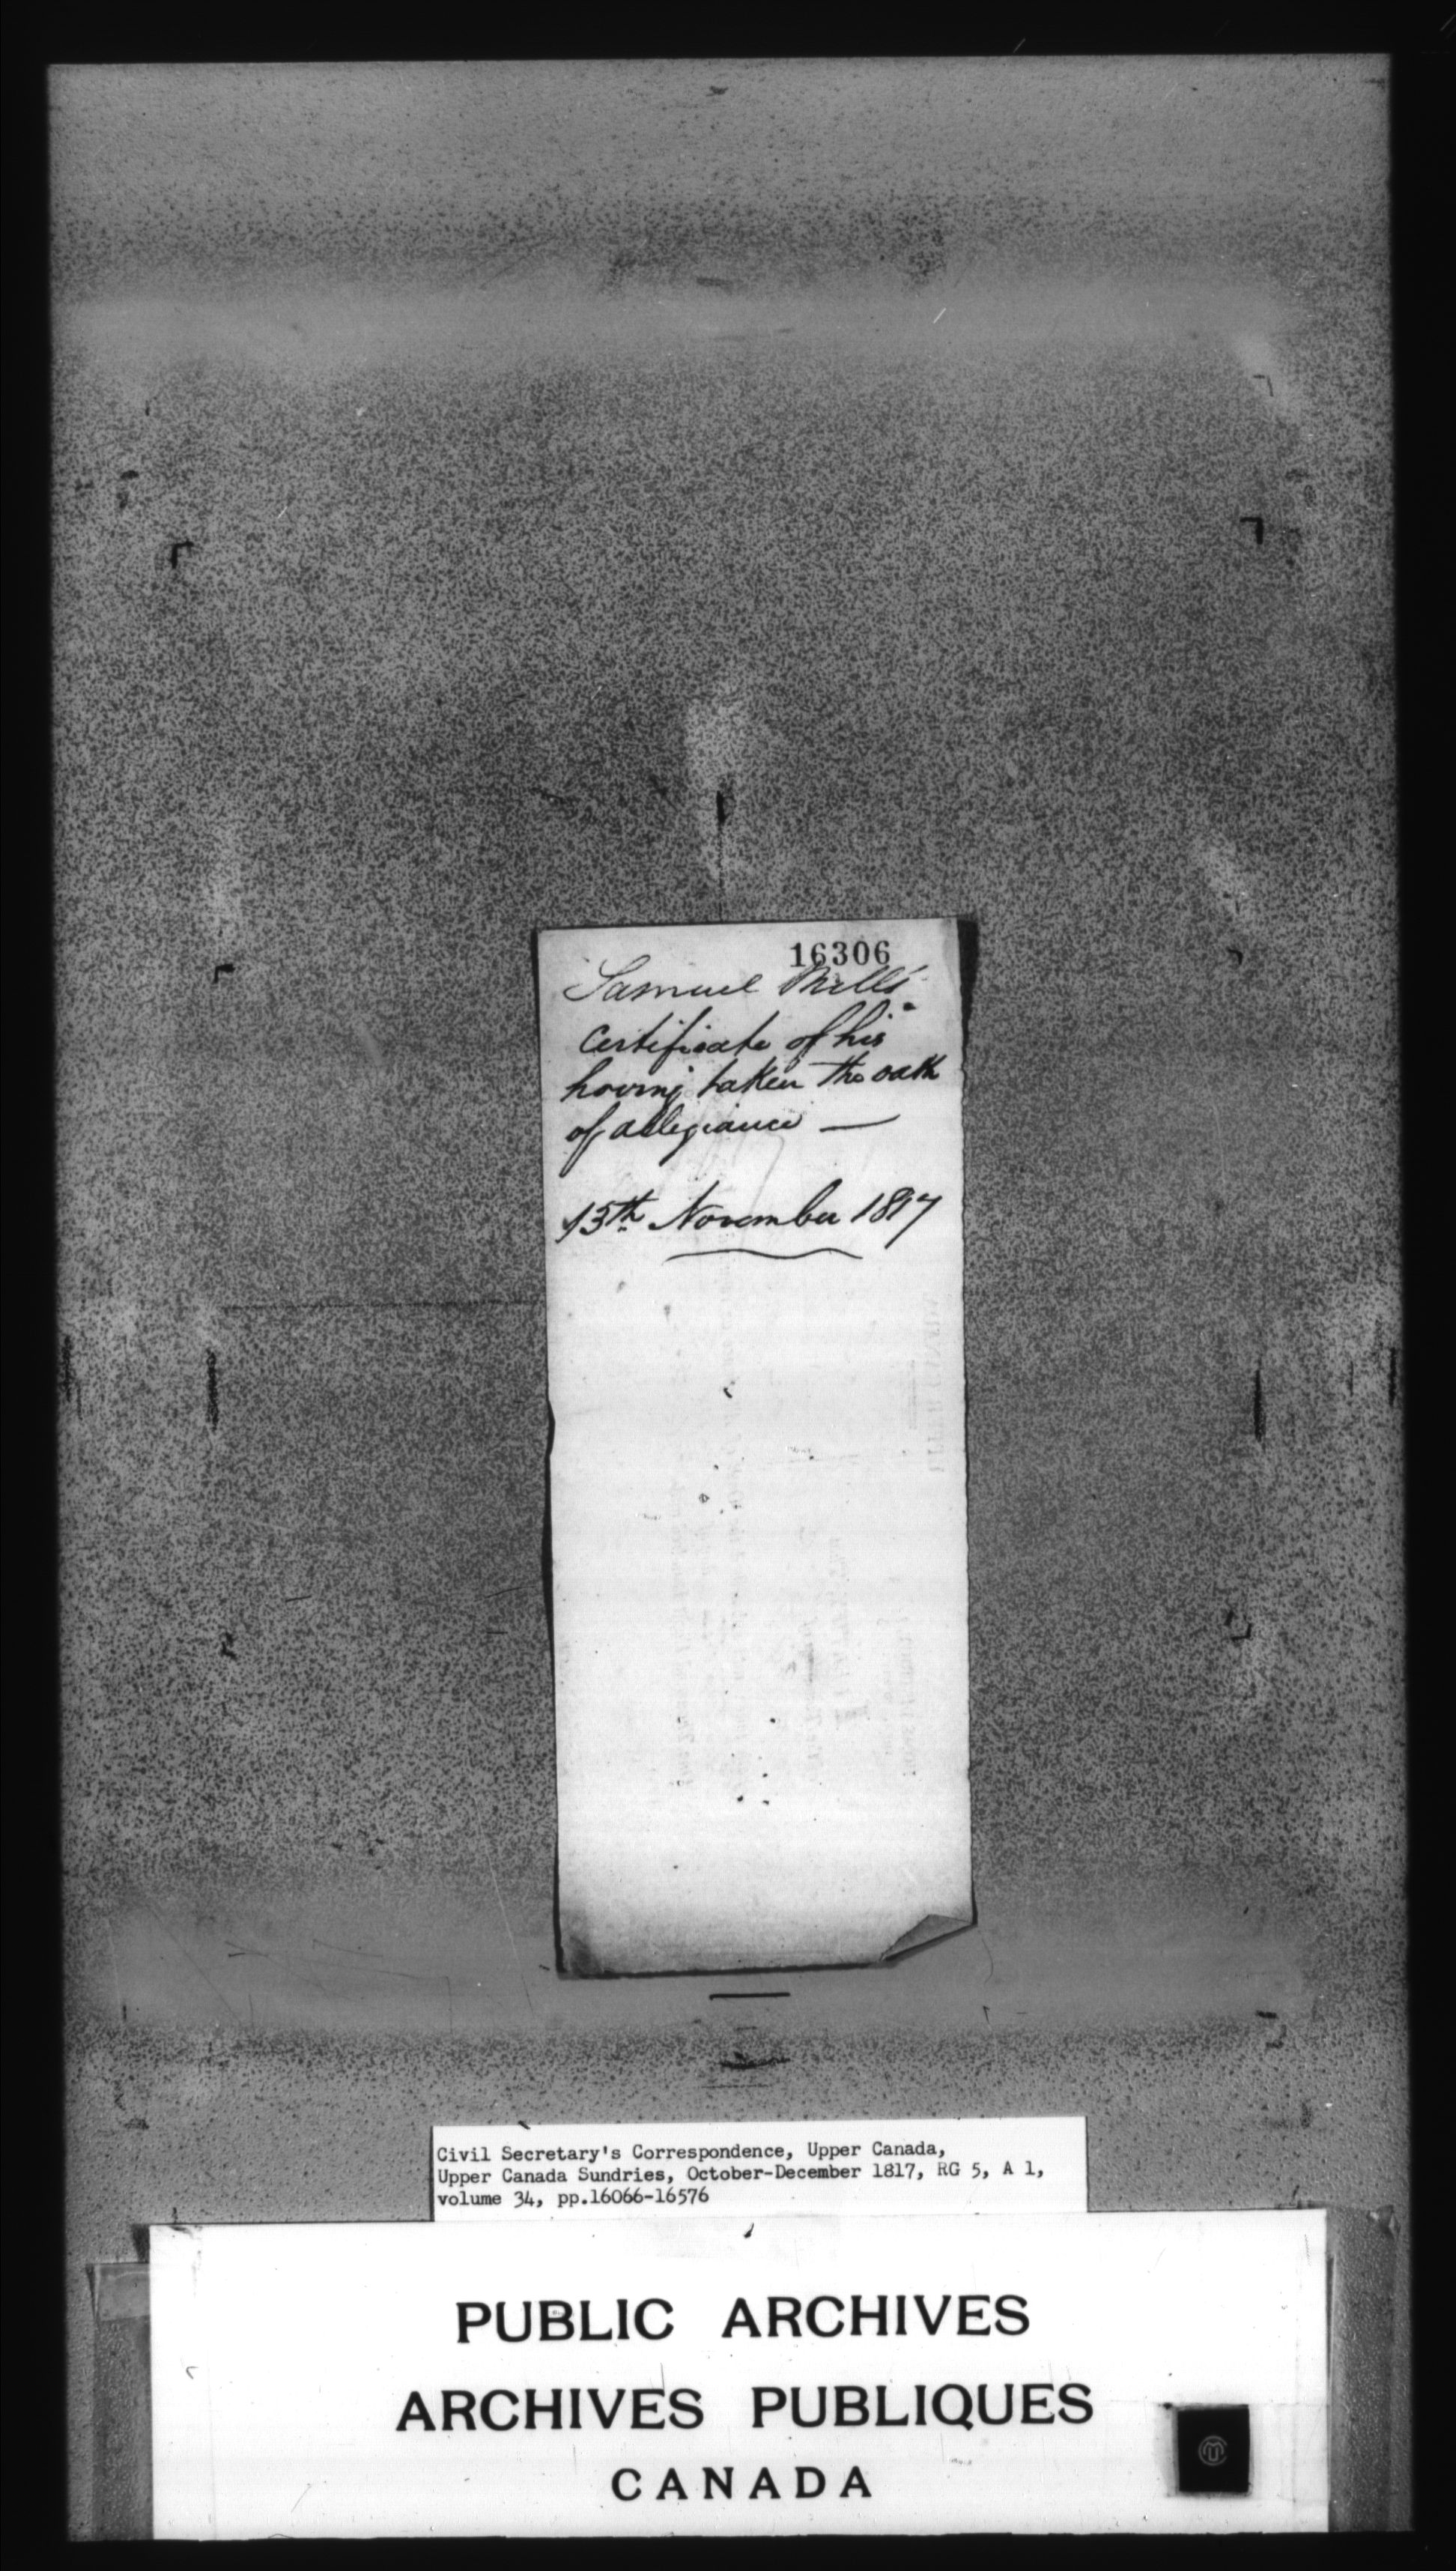 16306
Samuel Mills'
Certificate of his
having taken the oath
of allegiance —
13th November 1817
Civil Secretary's Correspondence, Upper Canada,
Upper Canada Sundries, October-December 1817, RG 5, A 1,
volume 34, pp.16066-16576
PUBLIC ARCHIVES
ARCHIVES PUBLIQUES
CANADA